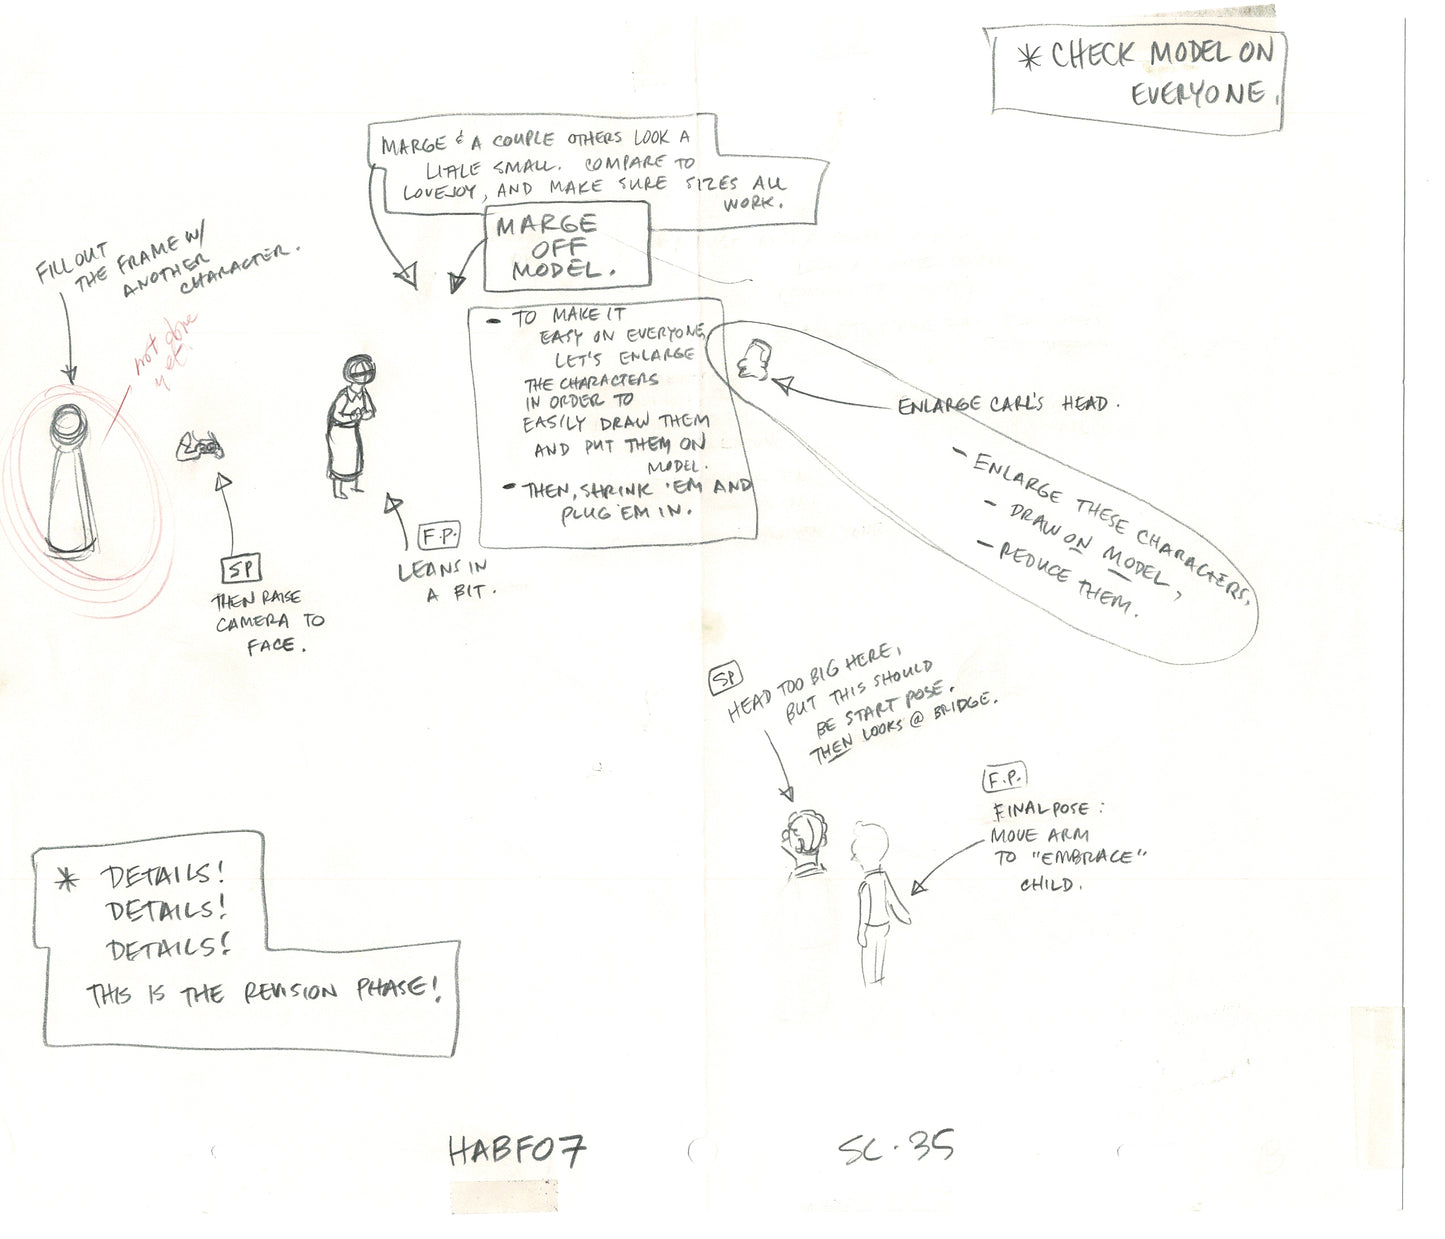 * CHECK MODEL ON
EVERYONE.
MARGE & A COUPLE OTHERS LOOK A
LITTLE SMALL. COMPARE TO
LOVEJOY, AND MAKE SURE SIZES ALL
WORK.
MARGE
OFF
MODEL.
FILL OUT
THE FRAME W/
ANOTHER
CHARACTER.
not done
yet.
- TO MAKE IT
EASY ON EVERYONE,
LET'S ENLARGE
THE CHARACTERS
IN ORDER TO
EASILY DRAW THEM
AND PUT THEM ON
MODEL.
- THEN, SHRINK 'EM AND
PLUG 'EM IN.
ENLARGE CARL'S HEAD.
- ENLARGE THESE CHARACTERS,
- DRAW ON MODEL,
- REDUCE THEM.
SP
THEN RAISE
CAMERA TO
FACE.
F.P.
LEANS IN
A BIT.
SP
HEAD TOO BIG HERE,
BUT THIS SHOULD
BE START POSE.
THEN LOOKS @ BRIDGE.
F.P.
FINAL POSE:
MOVE ARM
TO "EMBRACE"
CHILD.
* DETAILS!
DETAILS!
DETAILS!
THIS IS THE REVISION PHASE!
HABF07
SC.35